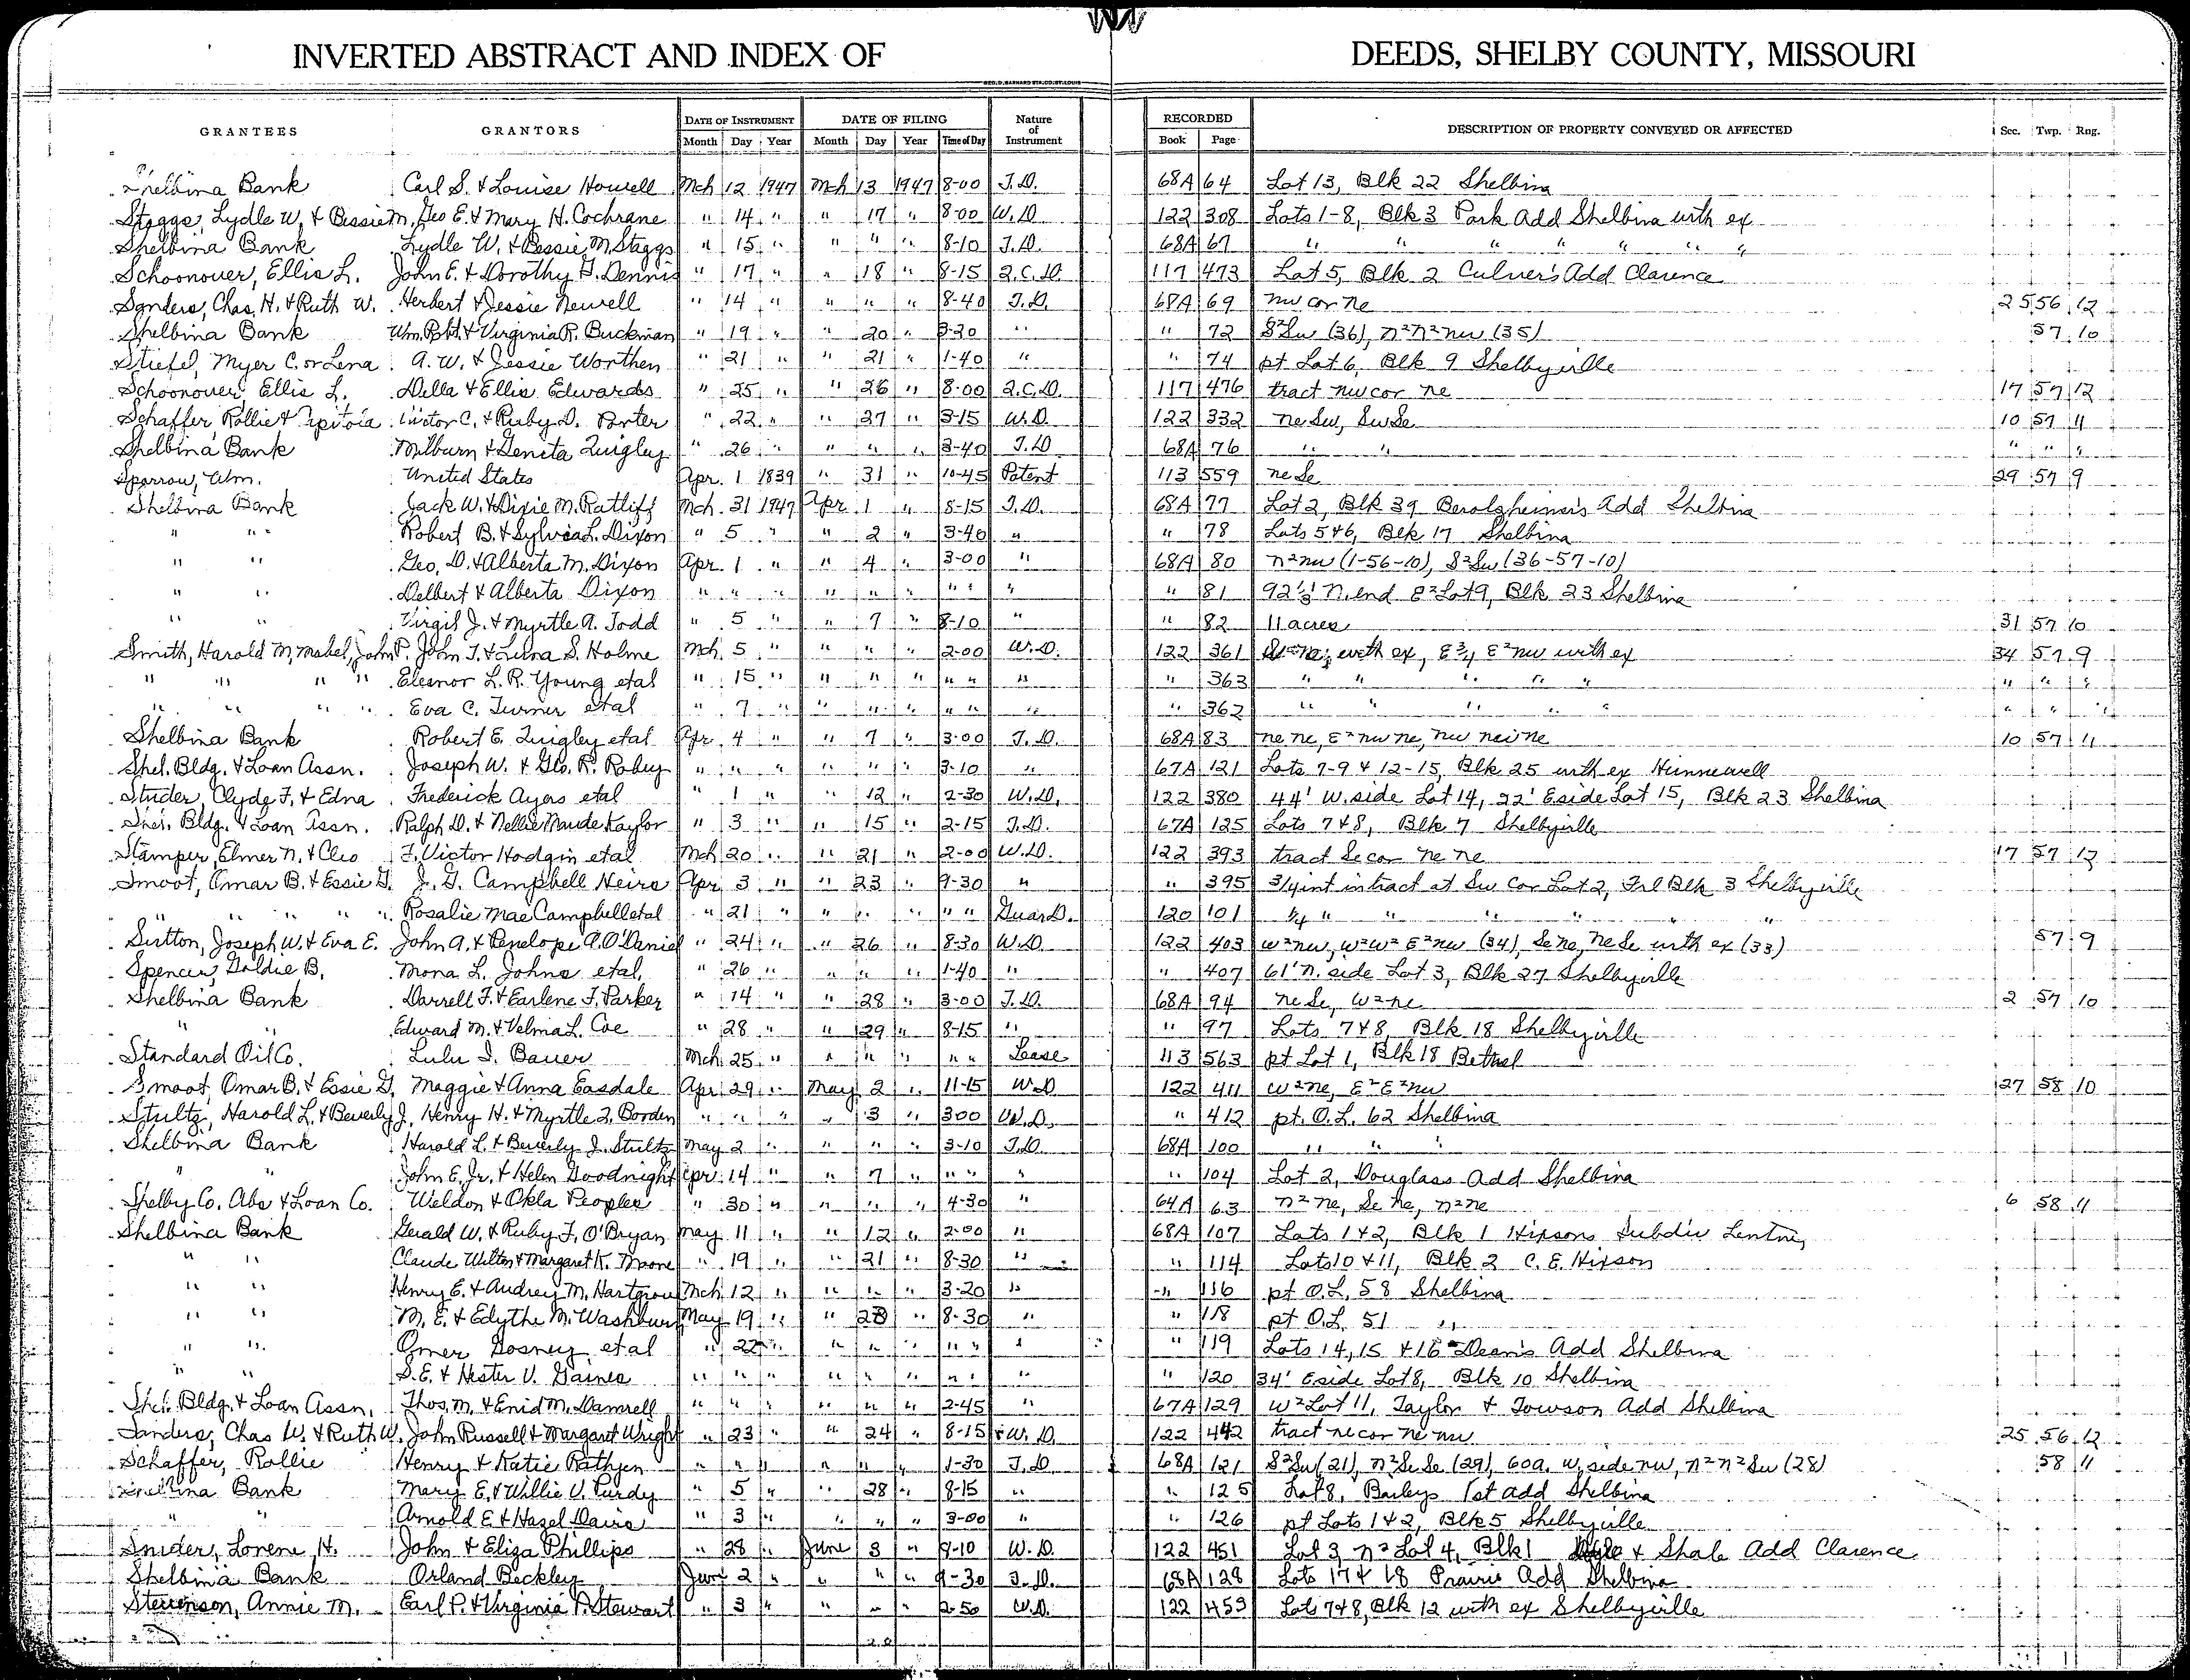 INVERTED ABSTRACT AND INDEX OF DEEDS, SHELBY COUNTY, MISSOURI
GEO. D. BARNARD STA. CO. ST. LOUIS
GRANTEES GRANTORS DATE OF INSTRUMENT DATE OF FILING Nature of Instrument RECORDED DESCRIPTION OF PROPERTY CONVEYED OR AFFECTED Sec. Twp. Rng.
Month Day Year Month Day Year Time of Day Book Page
Shelbina Bank Carl S. & Louise Howell Mch 12 1947 Mch 13 1947 8-00 T.D. 68A 64 Lot 13, Blk 22 Shelbina
Staggs, Lydle W. & Bessie M. Geo E. & Mary H. Cochrane " 14 " " 17 " 8-00 W.D. 122 308 Lots 1-8, Blk 3 Park Add Shelbina with ex
Shelbina Bank Lydle W. & Bessie M. Staggs " 15 " " " " 8-10 T.D. 68A 67 " " " " " " "
Schoonover, Ellis L. John E. & Dorothy F. Dennis " 17 " " 18 " 8-15 Q.C.D. 117 473 Lot 5, Blk 2 Culver's Add Clarence
Sanders, Chas. H. & Ruth W. Herbert & Jessie Newell " 14 " " " " 8-40 T.D. 68A 69 nw cor ne 25 56 12
Shelbina Bank Wm. Robt. & Virginia R. Buckman " 19 " " 20 " 3-20 " " 72 S²Sw (36), n²n²nw (35) 57 10
Stiefel, Myer C. or Lena A. W. & Jessie Worthen " 21 " " 21 " 1-40 " " 74 pt Lot 6, Blk 9 Shelbyville
Schoonover, Ellis L. Della & Ellis Edwards " 25 " " 26 " 8-00 Q.C.D. 117 476 tract nw cor ne 17 57 12
Schaffer, Rollie & Capitola Victor C. & Ruby D. Porter " 22 " " 27 " 3-15 W.D. 122 332 ne Sw, Sw Se 10 57 11
Shelbina Bank Milburn & Genita Quigley " 26 " " " " 3-40 T.D 68A 76 " " " " "
Sparrow, Wm. United States Apr. 1 1839 " 31 " 10-45 Patent 113 559 ne Se 29 57 9
Shelbina Bank Jack W. & Dixie M. Ratliff Mch. 31 1947 Apr 1 " 8-15 T.D. 68A 77 Lot 2, Blk 39 Berolzheimer's Add Shelbina
" " Robert B. & Sylvia L. Dixon " 5 " " 2 " 3-40 " " 78 Lots 5&6, Blk 17 Shelbina
" " Geo. D. & Alberta M. Dixon Apr. 1 " " 4 " 3-00 " 68A 80 n²nw (1-56-10), S²Sw (36-57-10)
" " Delbert & Alberta Dixon " " " " " " " " " " 81 92⅓' N. end E² Lot 9, Blk 23 Shelbina
" " Virgil J. & Myrtle A. Todd " 5 " " 7 " 8-10 " " 82 11 acres 31 57 10
Smith, Harold M, Mabel, John P. John T. & Luna S. Holme Mch. 5 " " " " 2-00 W.D. 122 361 with ex, E¾ E²nw with ex 34 57 9
" " " " Eleanor L. R. Young etal " 15 " " " " " " " " 363 " " " " " " " "
" " " " Eva C. Turner etal " 7 " " " " " " " " 362 " " " " " " " "
Shelbina Bank Robert E. Quigley etal Apr. 4 " " 7 " 3-00 T.D. 68A 83 ne ne, E²nw ne, nw ne 10 57 11
Shel. Bldg. & Loan Assn. Joseph W. & Geo. R. Robey " " " " " " 3-10 " 67A 121 Lots 7-9 & 12-15, Blk 25 with ex Hunnewell
Studer, Clyde F. & Edna Frederick Ayers etal " 1 " " 12 " 2-30 W.D. 122 380 44' W. side Lot 14, 22' E side Lot 15, Blk 23 Shelbina
Shel. Bldg. & Loan Assn. Ralph D. & Nellie Maude Kaylor " 3 " " 15 " 2-15 T.D. 67A 125 Lots 7&8, Blk 7 Shelbyville
Stamper, Elmer N. & Cleo F. Victor Hodgin etal Mch 20 " " 21 " 2-00 W.D. 122 393 tract Se cor ne ne 17 57 12
Smoot, Omar B. & Essie G. J. G. Campbell Heirs Apr 3 " " 23 " 9-30 " " 395 3/4 int in tract at Sw Cor Lot 2, Frl Blk 3 Shelbyville
" " " " Rosalie Mae Campbell etal " 21 " " " " " " Guar D. 120 101 1/4 " " " " "
Sutton, Joseph W. & Eva E. John A. & Penelope A. O'Daniel " 24 " " 26 " 8-30 W.D. 122 403 w²nw, w²w² E²nw (34), Se ne, ne Se with ex (33) 57 9
Spencer, Goldie B. Mona L. Johns etal. " 26 " " " " 1-40 " " 407 61' n. side Lot 3, Blk 27 Shelbyville
Shelbina Bank Darrell F. & Earlene F. Parker " 14 " " 28 " 3-00 T.D. 68A 94 ne Se, w²ne 2 57 10
" " Edward M. & Velma L. Coe " 28 " " 29 " 8-15 " " 97 Lots 7&8, Blk 18 Shelbyville
Standard Oil Co. Lulu I. Bauer Mch. 25 " " " " " " Lease 113 563 pt Lot 1, Blk 18 Bethel
Smoot, Omar B. & Essie G. Maggie & Anna Easdale Apr 29 " May 2 " 11-15 W.D 122 411 w²ne, E²E²nw 27 58 10
Stultz, Harold L. & Beverly J. Henry H. & Myrtle Q. Borden " " " " 3 " 3 00 W.D. " 412 pt. O.L. 62 Shelbina
Shelbina Bank Harold L. & Beverly J. Stultz May 2 " " " " 3-10 T.D. 68A 100 " " "
" " John E. Jr. & Helen Goodnight Apr. 14 " " 7 " " " " " 104 Lot 2, Douglass Add Shelbina
Shelby Co. Abs & Loan Co. Weldon & Okla Peoples " 30 " " " " 4-30 " 64A 63 n²ne, Se ne, n²ne 6 58 11
Shelbina Bank Gerald W. & Ruby F. O'Bryan May 11 " " 12 " 2-00 " 68A 107 Lots 1&2, Blk 1 Hixsons Subdiv Lentner
" " Claude Wilton & Margaret K. Moore " 19 " " 21 " 8-30 " " 114 Lots 10 & 11, Blk 2 C. E. Hixson
" " Henry E. & Audrey M. Hartgrove Mch. 12 " " " " 3-20 " " 116 pt O.L. 58 Shelbina
" " M. E. & Edythe M. Washburn May 19 " " 23 " 8-30 " " 118 pt O.L. 51 "
" " Omer Gosney etal " 22 " " " " " " " " 119 Lots 14, 15 & 16 Dean's Add Shelbina
" " S. E. & Hester V. Gaines " " " " " " " " " " 120 34' E side Lot 8, Blk 10 Shelbina
Shel. Bldg. & Loan Assn. Thos. M. & Enid M. Damrell " " " " " " 2-45 " 67A 129 W² Lot 11, Taylor & Towson Add Shelbina
Sanders, Chas W. & Ruth W. John Russell & Margaret Wright " 23 " " 24 " 8-15 W.D. 122 442 tract ne cor ne nw 25 56 12
Schaffer, Rollie Henry & Katie Rathjen " " " " " " 1-30 T.D 68A 121 S²Sw (21), n²Se Se (29), 60a. w. side nw, n²n²Sw (28) 58 11
Shelbina Bank Mary E. & Willie V. Purdy " 5 " " 28 " 8-15 " " 125 Lot 8, Baileys 1st add Shelbina
" " Arnold E. & Hazel Davis " 3 " " " " 3-00 " " 126 pt Lots 1 & 2, Blk 5 Shelbyville
Snider, Lorene H. John & Eliza Phillips " 28 " June 3 " 9-10 W.D. 122 451 Lot 3, n² Lot 4, Blk 1 & Shale Add Clarence
Shelbina Bank Orland Beckley June 2 " " " " 9-30 T.D. 68A 128 Lots 17 & 18 Prairie Add Shelbina
Stevenson, Annie M. Earl P. & Virginia P. Stewart " 3 " " " 2-50 W.D. 122 453 Lots 7&8, Blk 12 with ex Shelbyville